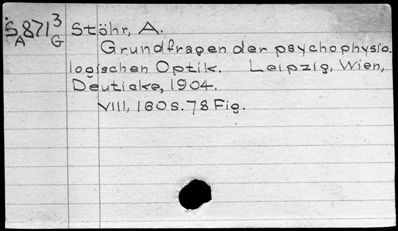 S̈871³ Stöhr, A.
A G Grundfragen der psychophysio
logischen Optik. Leipzig, Wien,
Deuticke, 1904.
VIII, 160 s. 78 Fig.